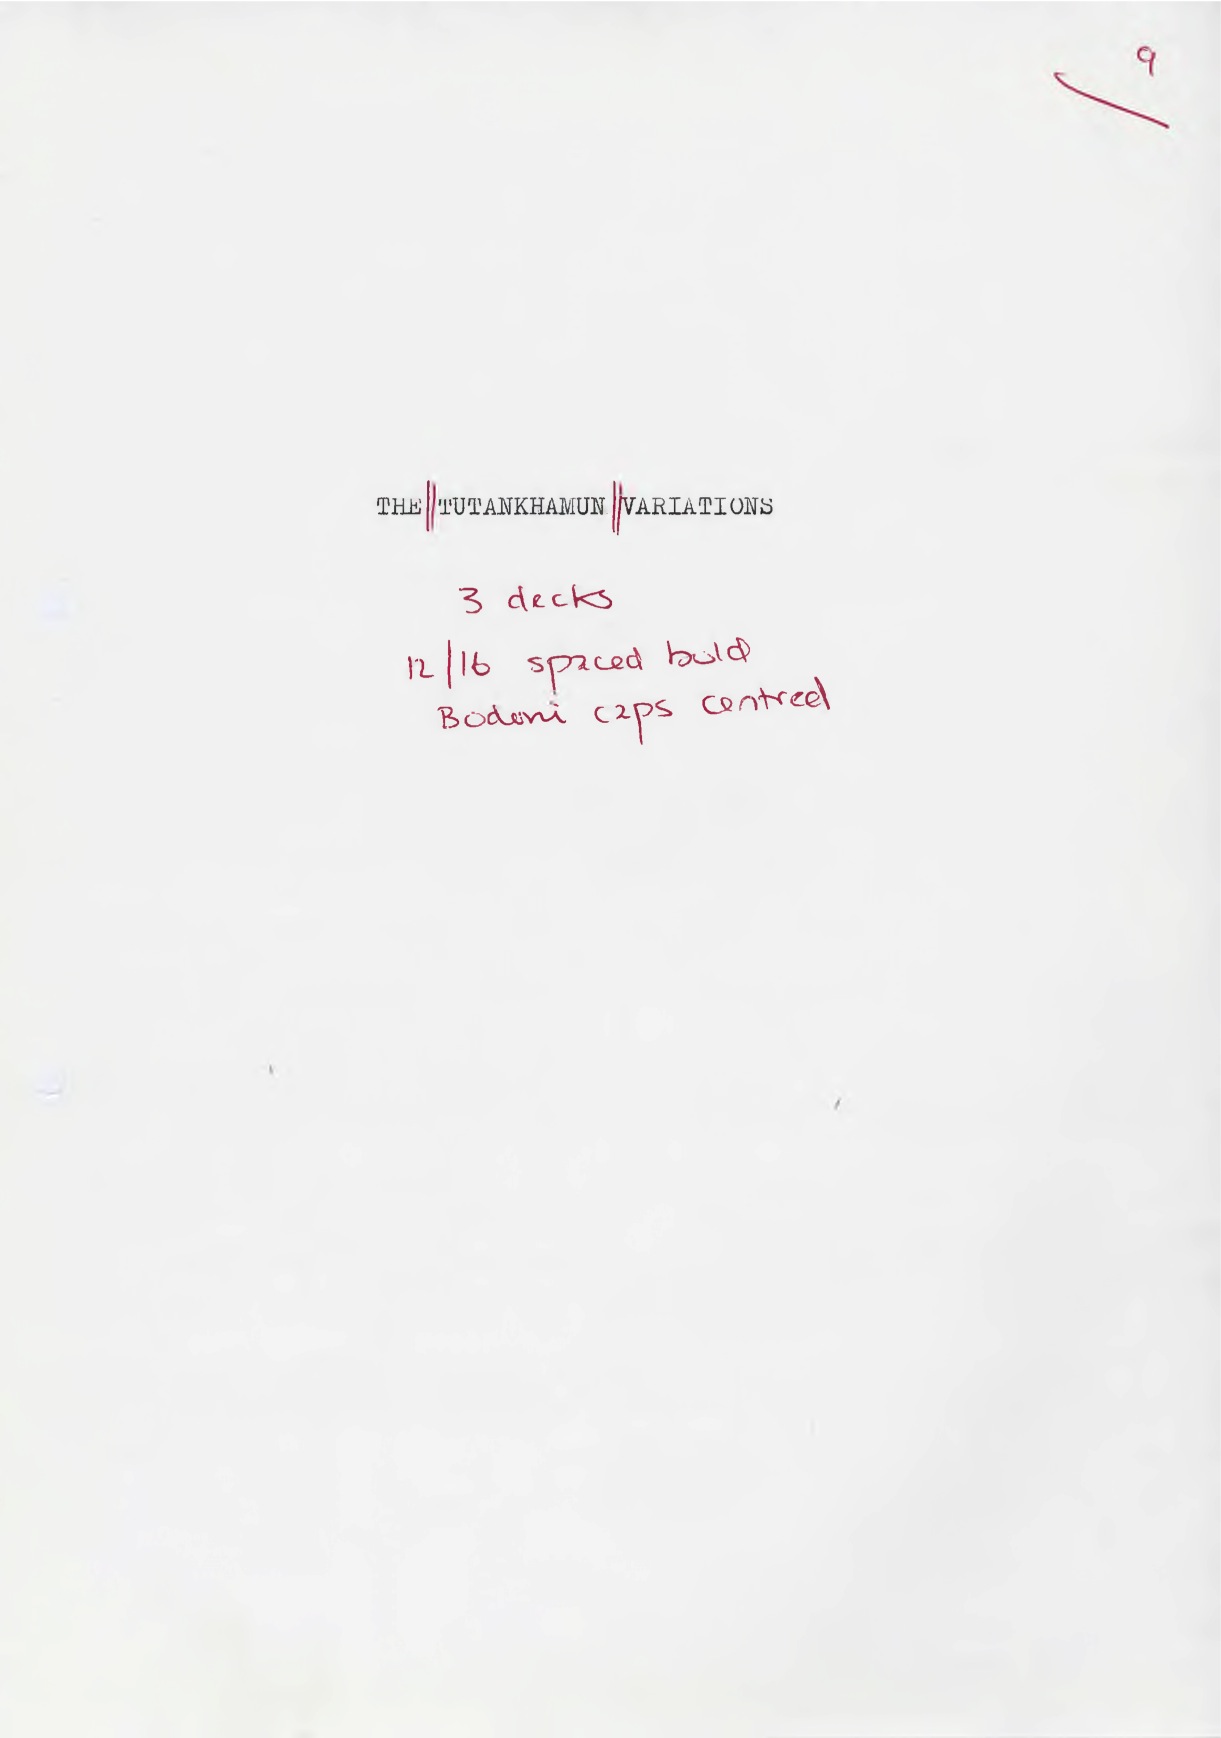 9
THE || TUTANKHAMUN || VARIATIONS
3 decks
12/16 spaced bold
Bodoni caps centred